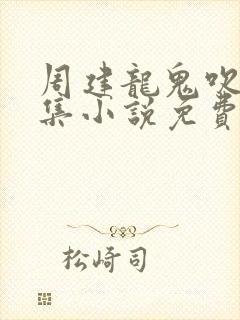 周建龍鬼吹
集小說免費
松崎司